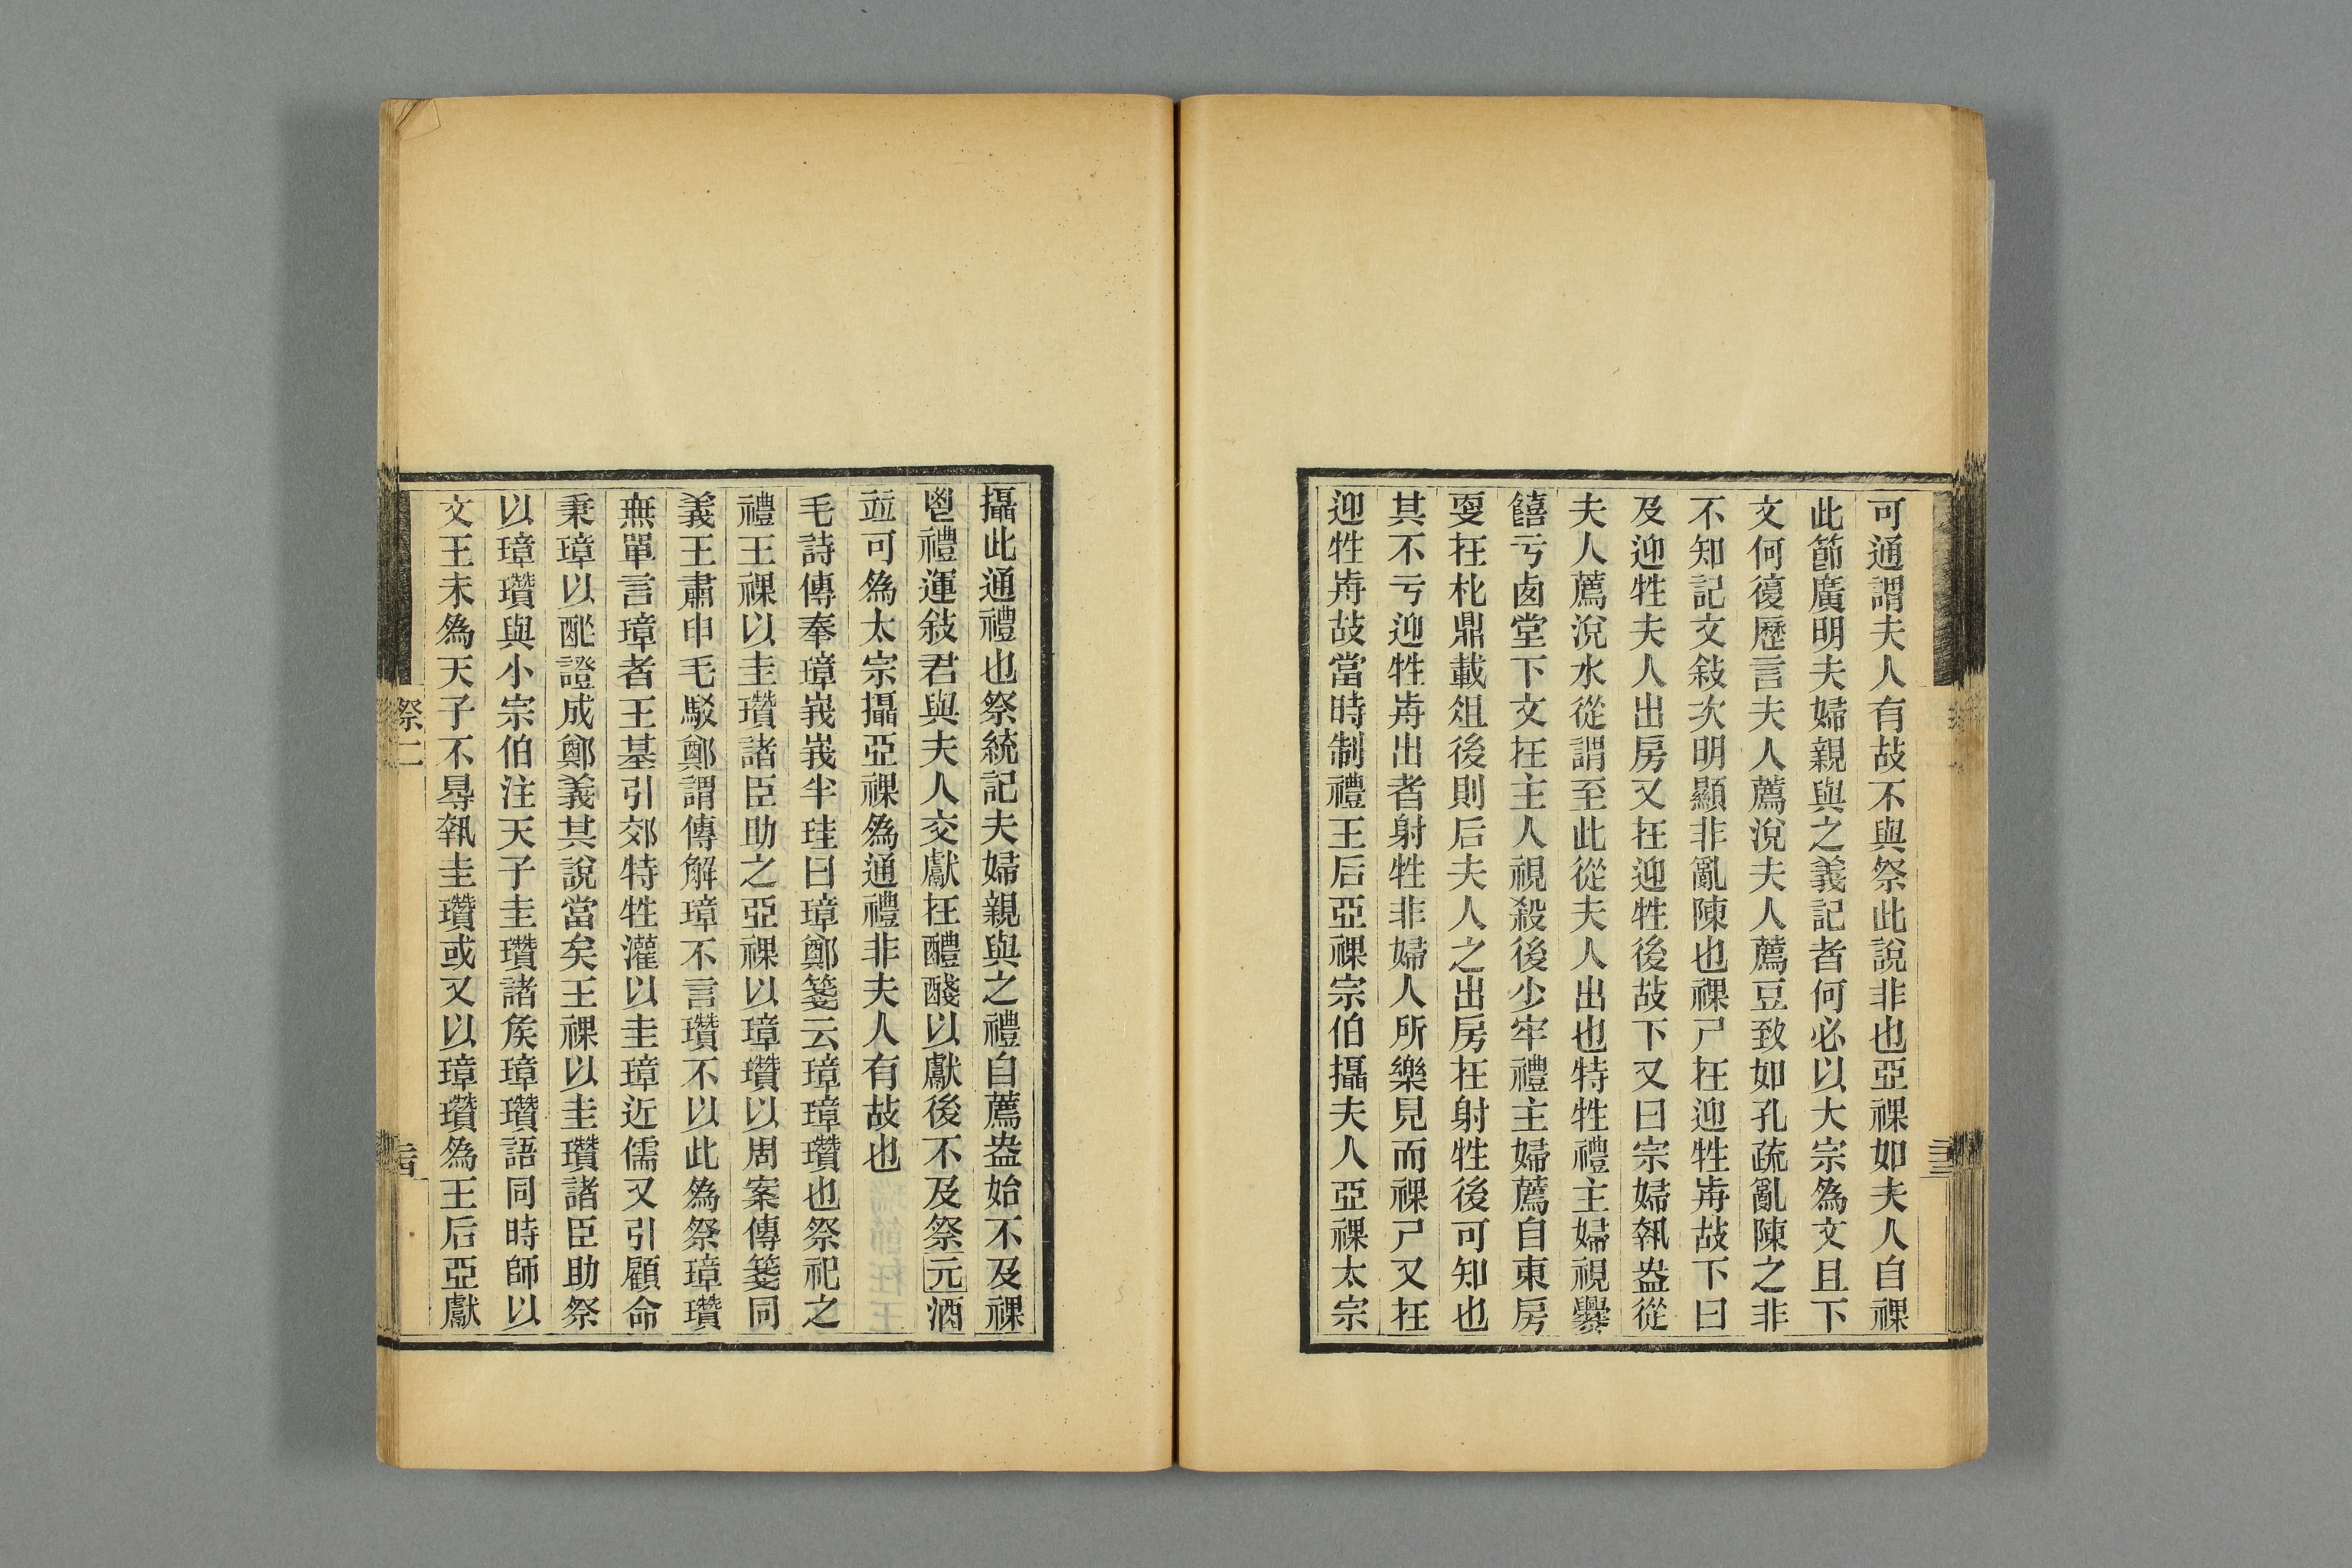 可通謂夫人有故不與祭此說非也亞祼如夫人自祼
此節廣明夫婦親與之義記者何必以大宗為文且下
文何復歷言夫人薦涗夫人薦豆致如孔疏亂陳之非
不知記文敍次明顯非亂陳也祼尸在迎牲歬故下曰
及迎牲夫人出房又在迎牲後故下又曰宗婦執盎從
夫人薦涗水從謂至此從夫人出也特牲禮主婦視爨
饎亏卤堂下文在主人視殺後少牢禮主婦薦自東房
耍在朼鼎載俎後則后夫人之出房在射牲後可知也
其不亏迎牲歬出者射牲非婦人所樂見而祼尸又在
迎牲歬故當時制禮王后亞祼宗伯攝夫人亞祼太宗
攝此通禮也祭統記夫婦親與之禮自薦盎始不及祼
鬯禮運敍君與夫人交獻在醴醆以獻後不及祭元酒
竝可為太宗攝亞祼為通禮非夫人有故也
毛詩傳奉璋峩峩半珪曰璋鄭箋云璋璋瓚也祭祀之
禮王祼以圭瓚諸臣助之亞祼以璋瓚以周案傳箋同
義王肅申毛駁鄭謂傳解璋不言瓚不以此為祭璋瓚
無單言璋者王基引郊特牲灌以圭璋近儒又引顧命
秉璋以酢證成鄭義其說當矣王祼以圭瓚諸臣助祭
以璋瓚與小宗伯注天子圭瓚諸矦璋瓚語同時師以
文王未為天子不㝵執圭瓚或又以璋瓚為王后亞獻
祭二